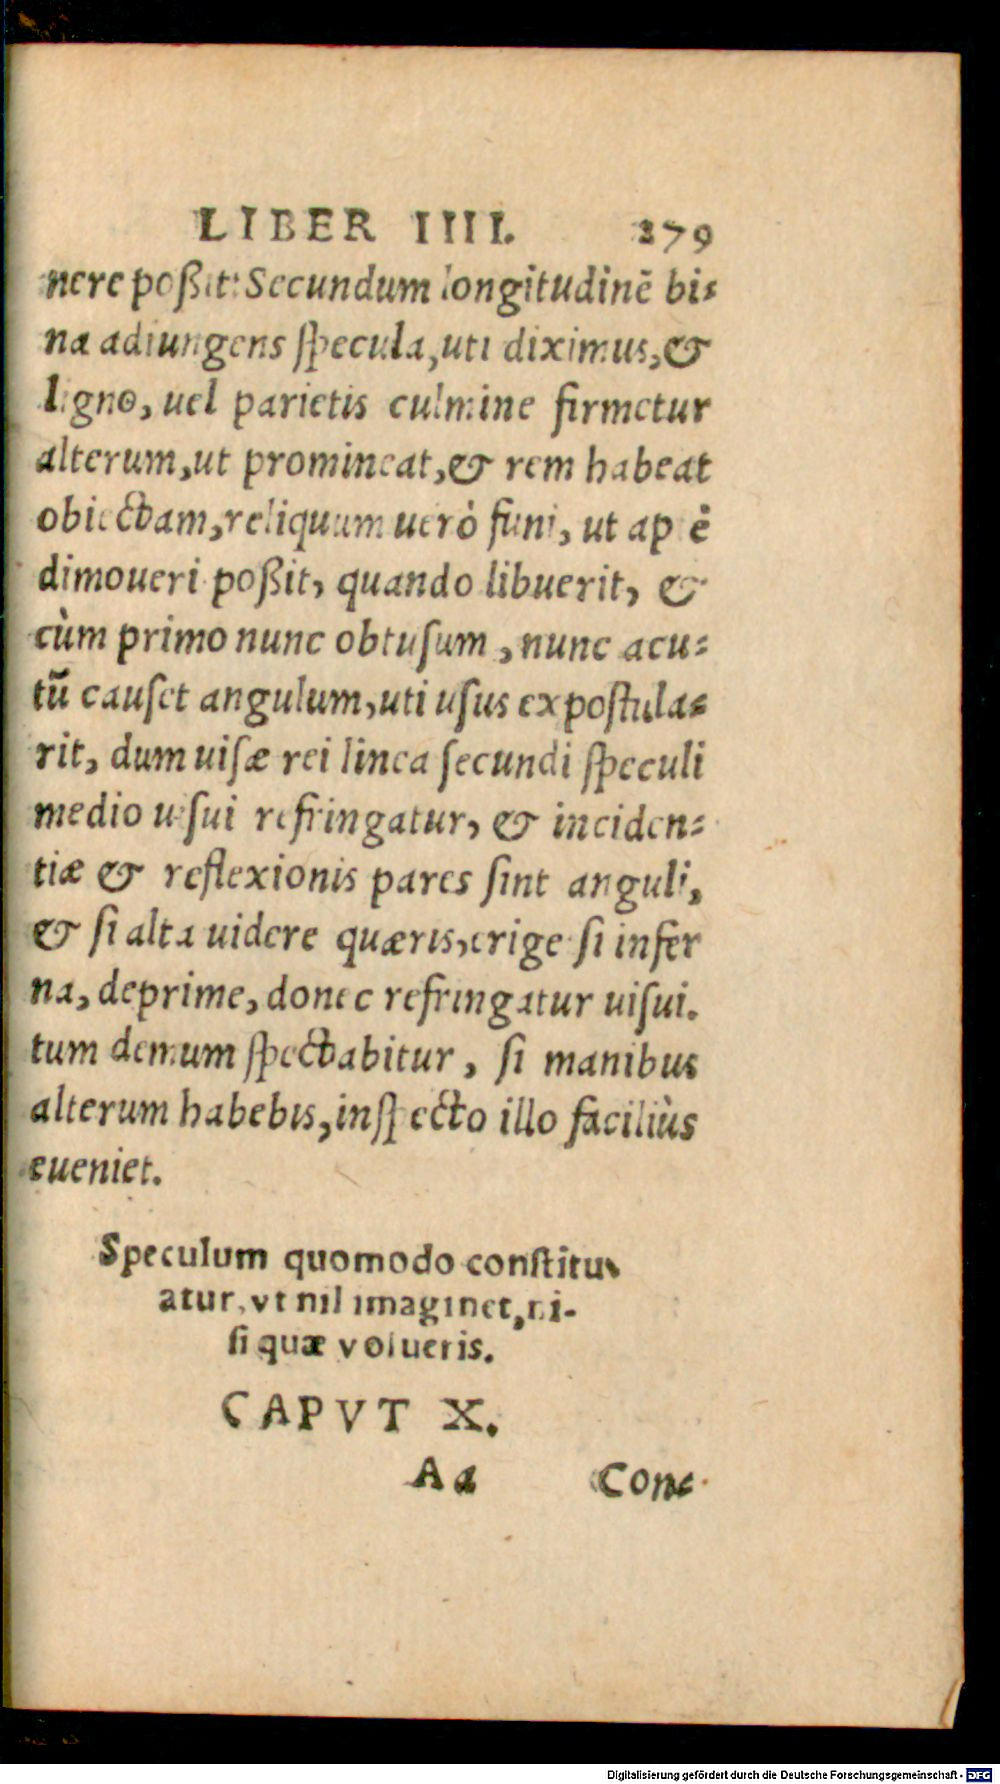 LIBER IIII. 279
nere poßit: Secundum longitudinē bi-
na adiungens specula, uti diximus, &
ligno, uel parietis culmine firmetur
alterum, ut promineat, & rem habeat
obiectam, reliquum uerò funi, ut ap ē
dimoueri poßit, quando libuerit, &
cùm primo nunc obtusum, nunc acu-
tū causet angulum, uti usus expostula-
rit, dum uisæ rei linea secundi speculi
medio uisui refringatur, & inciden-
tiæ & reflexionis pares sint anguli,
& si alta uidere quæris, erige si infer
na, deprime, donec refringatur uisui.
tum demum spectabitur, si manibus
alterum habebis, inspecto illo faciliùs
eueniet.
Speculum quomodo constitu-
atur, vt nil imaginet, ni-
si quæ volueris.
CAPVT X.
Aa Con-
Digitalisierung gefördert durch die Deutsche Forschungsgemeinschaft - DFG